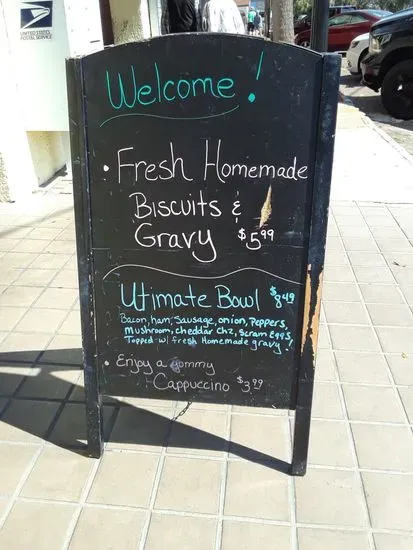 UNITED STATES
POSTAL SERVICE
Welcome!
• Fresh Homemade
Biscuits &
Gravy $5.99
Ultimate Bowl $8.49
Bacon, ham, Sausage, onion, Peppers,
mushroom, cheddar Chz, Scram Eggs
Topped w/ fresh Homemade gravy!
• Enjoy a yommy
Cappuccino $3.99